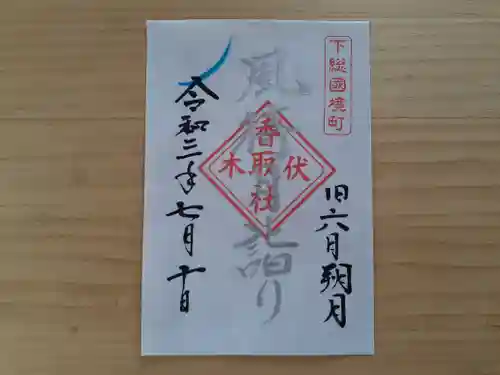 下総國境町
旧六月朔月
風待月詣り
香取社
伏木
令和三年七月十日